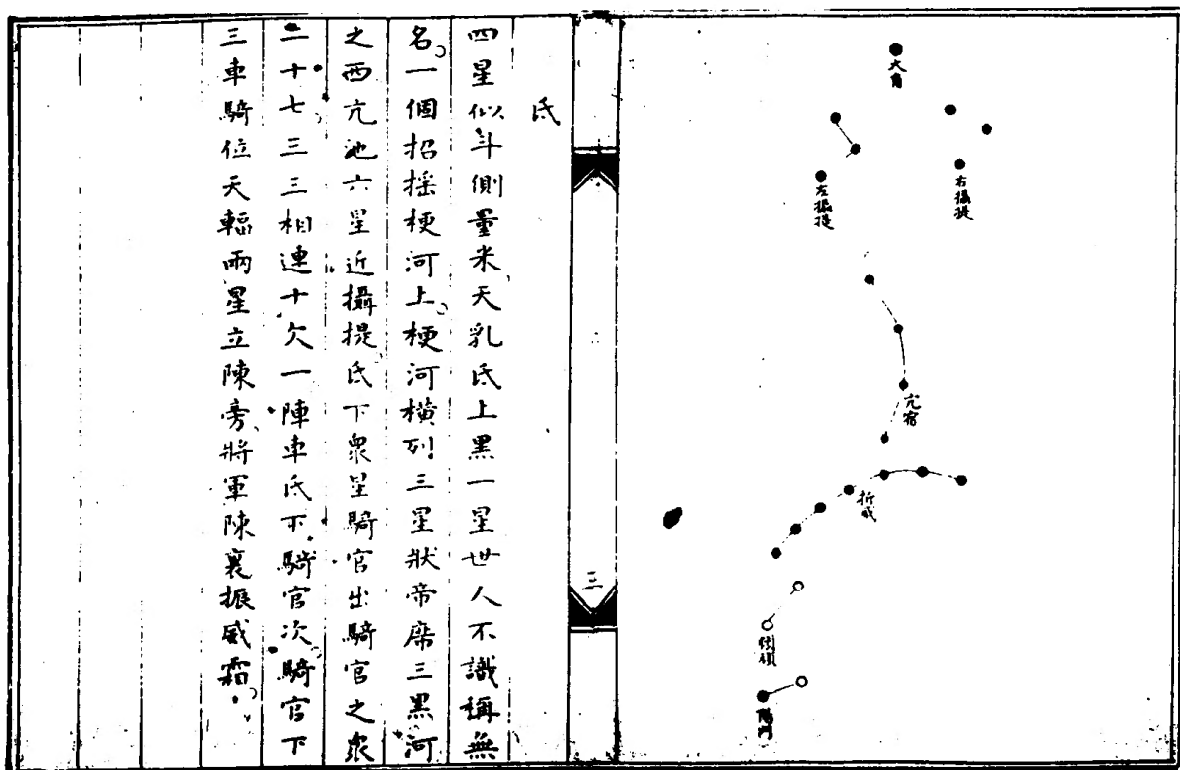 大角
右攝提
左攝提
亢宿
折威
頓頑
陽門
三
氐
四星似斗側量米天乳氐上黑一星世人不識稱無
名一個招搖梗河上梗河橫列三星狀帝席三黑河
之西亢池六星近攝提氐下衆星騎官出騎官之衆
二十七三三相連十欠一陣車氐下騎官次騎官下
三車騎位天輻兩星立陳旁將軍陳裏振威霜